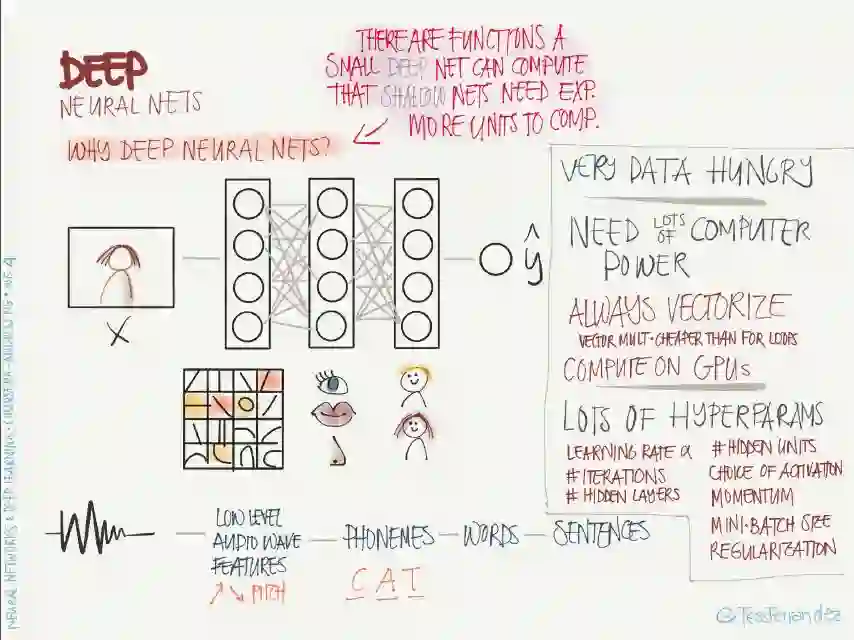 DEEP
NEURAL NETS
WHY DEEP NEURAL NETS?
THERE ARE FUNCTIONS A
SMALL DEEP NET CAN COMPUTE
THAT SHALLOW NETS NEED EXP.
MORE UNITS TO COMP.
X
ŷ
VERY DATA HUNGRY
NEED LOTS OF COMPUTER
POWER
ALWAYS VECTORIZE
VECTOR MULT. CHEAPER THAN FOR LOOPS
COMPUTE ON GPUs
LOTS OF HYPERPARAMS
LEARNING RATE α
#ITERATIONS
# HIDDEN LAYERS
# HIDDEN UNITS
CHOICE OF ACTIVATION
MOMENTUM
MINI-BATCH SIZE
REGULARIZATION
LOW LEVEL
AUDIO WAVE
FEATURES
↗↘ PITCH
PHONEMES — WORDS — SENTENCES
C A T
@TessFerrandez
NEURAL NETWORKS & DEEP LEARNING · COURSERA